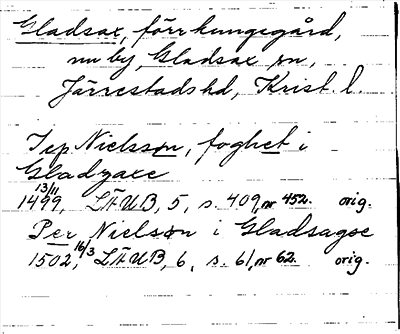 Gladsax, förr kungsgård,
nu by, Gladsax sn,
Järrestads hd, Krist. l.
Jep Nielsson, foghet i
Gladzaxe
13/11 1499, LÄUB, 5, s. 409, nr 452. orig.
Per Nielsøn i Gladsagse
1502, 16/3 LÄUB, 6, s. 61, nr 62. orig.